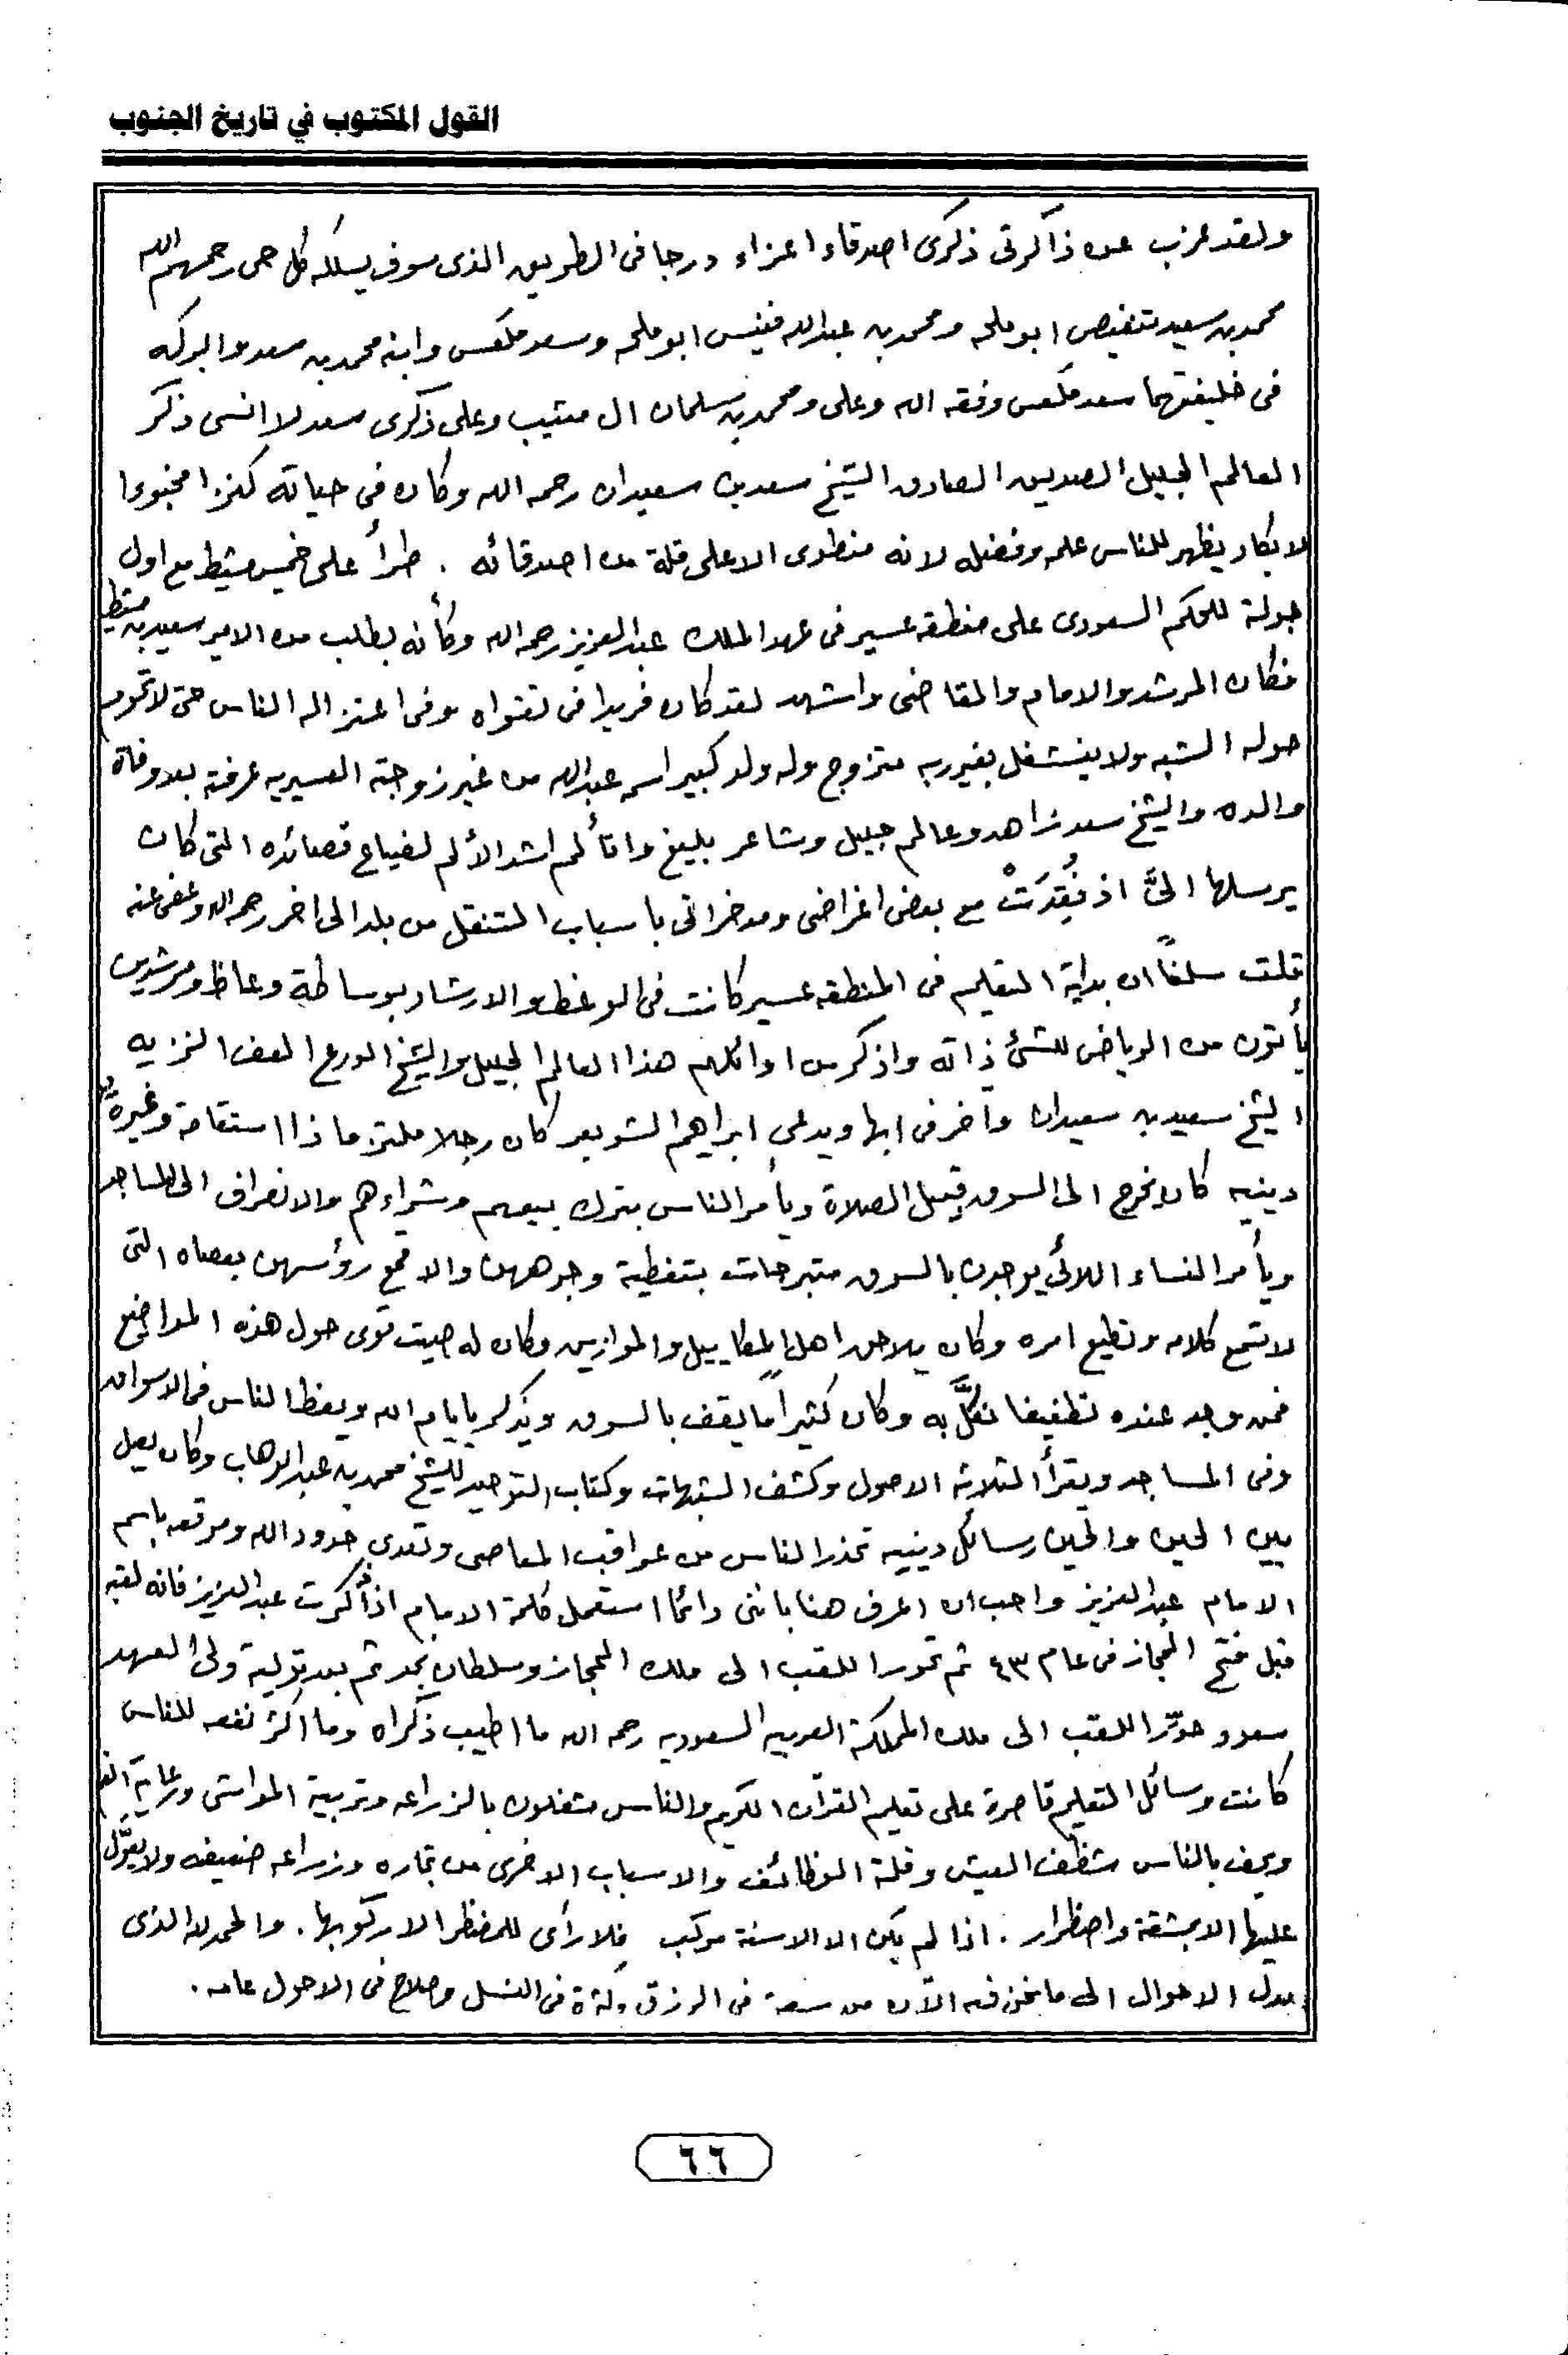 القول المكتوب في تاريخ الجنوب
ولقد عزب عن ذاكرتى ذكرى اصدقاء اعزاء درجا فى الطريق الذى سوف يسلكه كل حى رحمهم الله
محمد بن سعيد ابو ملحه ومحمد بن عبدالله ابو ملحه وسعد وابنه محمد بن سعد والبركه
فى خليفتهما سعد وفقه الله وعلى ومحمد بن سلمان ال وعلى ذكرى سعد لا انسى ذكر
العالم الجليل الصديق الصادق الشيخ سعد بن سعيدان رحمه الله وكان فى حياته كنزا مخبوءا
لا يكاد يظهر للناس علمه وفضله لانه منطوى الا على قلة من اصدقائه . طرأ على خميس مشيط مع اول
جولة للحكم السعودى على منطقة عسير فى عهد الملك عبدالعزيز رحمه الله وكأنه بطلب من الامير سعيد بن مشيط
فكان المرشد والامام والقاضى واشهد لقد كان فريدا فى تقواه وفى اعتزاله الناس حتى لا تحوم
حوله الشبه ولا ينشغل بغير ربه متزوج وله ولد كبير اسمه عبدالله من غير زوجته العسيريه عرفته بعد وفاة
والده والشيخ سعد زاهد وعالم جليل وشاعر بليغ واتألم اشد الألم لضياع قصائده التى كان
يرسلها الىَّ اذ فُقِدَتْ مع بعض اغراضى ومدخراتى باسباب التنقل من بلد الى اخر رحمه الله وعفى عنه
قلت سلفاً ان بداية التعليم فى المنطقه عسير كانت فى الوعظ والارشاد بوساطة وعاظ ومرشدين
يأتون من الرياض للشئ ذاته واذكر من اوائلهم هذا العالم الجليل والشيخ الورع العف النزيه
الشيخ سعيد بن سعيدان وآخر فى ابها ويدعى ابراهيم الشويعر كان رجلا ملتزما ذا استقامة وغيرةٍ
دينيه كان يخرج الى السوق قبيل الصلاة ويأمر الناس بترك بيعهم وشراءهم والانصراف الى المساجد
ويأمر النساء اللائى يوجدن بالسوق متبرجات بتغطية وجوههن والا قمع رؤسهن بعصاه التى
لا تسمع كلامه وتطيع امره وكان يلاحق اهل المكاييل والموازين وكان له صيت قوى حول هذه المواضيع
فمن وجد عنده تطفيفا نكَّل به وكان كثيراً ما يقف بالسوق ويذكر بايام الله ويعظ الناس فى الاسواق
وفى المساجد ويقرأ الثلاثه الاصول وكشف الشبهات وكتاب التوحيد للشيخ محمد بن عبدالوهاب وكان يصل
بين الحين والحين رسائل دينيه تحذر الناس من عواقب المعاصى وتعدى حدود الله وموقعه باسم
الامام عبدالعزيز واحب ان اعرف هنا باننى دائما استعمل كلمة الامام اذا ذكرت عبدالعزيز فانه لقبه
قبل فتح الحجاز فى عام ٤٣ ثم تحور اللقب الى ملك الحجاز وسلطان نجد ثم بعد تولية ولى العهد
سعود اللقب الى ملك المملكة العربيه السعوديه رحمه الله ما اطيب ذكراه وما اكثر نفعه للناس
كانت وسائل التعليم قاصرة على تعليم القرآن الكريم والناس متغلون بالزراعه وتربية المواشى ورعاية الغنم
ويحف بالناس شظف العيش وقلة الوظائف والاسباب الاخرى من تجاره وزراعه ضعيفه ولا يعوَّل
عليها الا بمشقة واضطرار . اذا لم يكن الا الاسنة مركب فلا رأى للمضطر الا ركوبها . والحمد لله الذى
بدل الاحوال الى ما نحن فيه الآن من سعة فى الرزق وكثرة فى النسل وصلاح فى الاحول عامه .
٦٦